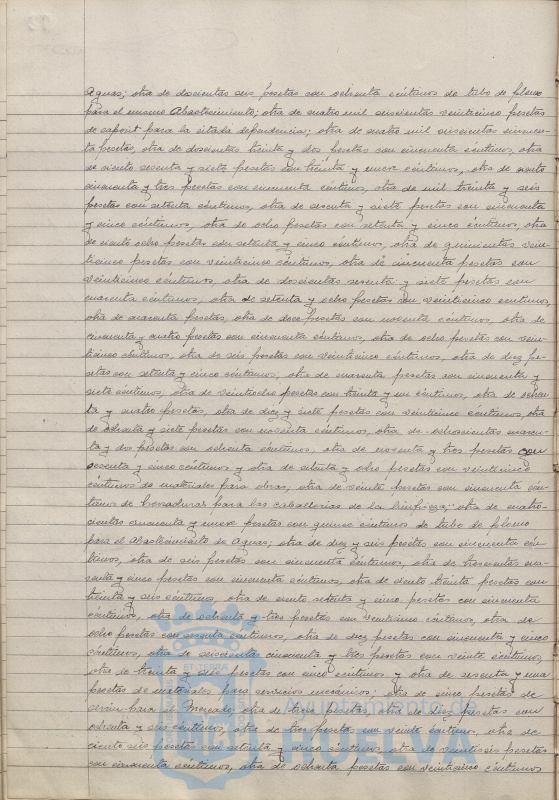 Aguas; otra de doscientas seis pesetas con ochenta céntimos de tubo de plomo
para el mismo Abastecimiento; otra de cuatro mil seiscientas veinticinco pesetas
para la citada dependencia; otra de cuatro mil seiscientas cincuen-
ta pesetas, otra de doscientas treinta y dos pesetas con cincuenta céntimos, otra
de ciento sesenta y siete pesetas con treinta y nueve céntimos, otra de
cincuenta y tres pesetas con cincuenta céntimos, otra de mil treinta y seis
pesetas con setenta céntimos, otra de sesenta y siete pesetas con cincuenta
y cinco céntimos, otra de ocho pesetas con setenta y cinco céntimos, otra
de ciento ocho pesetas con setenta y cinco céntimos, otra de quinientas vein-
ticinco pesetas con veinticinco céntimos, otra de cincuenta pesetas con
veinticinco céntimos, otra de doscientas sesenta y siete pesetas con
cuarenta céntimos, otra de setenta y ocho pesetas con veinticinco céntimos,
otra de cuarenta pesetas, otra de doce pesetas con noventa céntimos, otra de
cincuenta y cuatro pesetas con cincuenta céntimos, otra de ocho pesetas con vein-
ticinco céntimos, otra de seis pesetas con veinticinco céntimos, otra de diez pe-
setas con setenta y cinco céntimos, otra de cuarenta pesetas con cincuenta y
siete céntimos, otra de veintiocho pesetas con treinta y un céntimos, otra de ochen-
ta y cuatro pesetas, otra de diez y siete pesetas con veinticinco céntimos, otra
de ochenta y siete pesetas con noventa céntimos, otra de ochocientas cuaren-
ta y dos pesetas con ochenta céntimos, otra de noventa y tres pesetas con
sesenta y cinco céntimos y otra de setenta y ocho pesetas con veinticinco
céntimos de materiales para obras, otra de veinte pesetas con cincuenta cén-
timos de herraduras para las caballerías de la limpieza; otra de cuatro-
cientas cincuenta y nueve pesetas con quince céntimos de tubo de plomo
para el Abastecimiento de Aguas; otra de diez y seis pesetas con cincuenta cén-
timos, otra de seis pesetas con cincuenta céntimos, otra de trescientas cua-
renta y cinco pesetas con cincuenta céntimos, otra de ciento treinta pesetas con
treinta y seis céntimos, otra de ciento setenta y cinco pesetas con cincuenta
céntimos, otra de ochenta y tres pesetas con veinticinco céntimos, otra de
ocho pesetas con sesenta céntimos, otra de diez pesetas con cincuenta y cinco
céntimos, otra de seiscientas cincuenta y tres pesetas con veinte céntimos,
otra de treinta y seis pesetas con cinco céntimos y otra de sesenta y una
pesetas de materiales para servicios mecánicos; otra de cinco pesetas de
para el Mercado, otra de trece pesetas, otra de diez pesetas con
ochenta y seis céntimos, otra de tres pesetas con veinte céntimos, otra de
ciento seis pesetas con setenta y cinco céntimos, otra de veintiséis pesetas
con cincuenta céntimos, otra de ochenta pesetas con veinticinco céntimos
ET TERRÆ
Ayuntamiento de
HUELVA